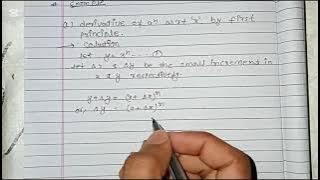 Example
Q) derivative of xⁿ w.r.t 'x' by first
principle.
→ Solution
let y = xⁿ --- ①
let Δx & Δy be the small increment in
x & y respectively
y+Δy = (x+Δx)ⁿ
or, Δy = (x+Δx)ⁿ